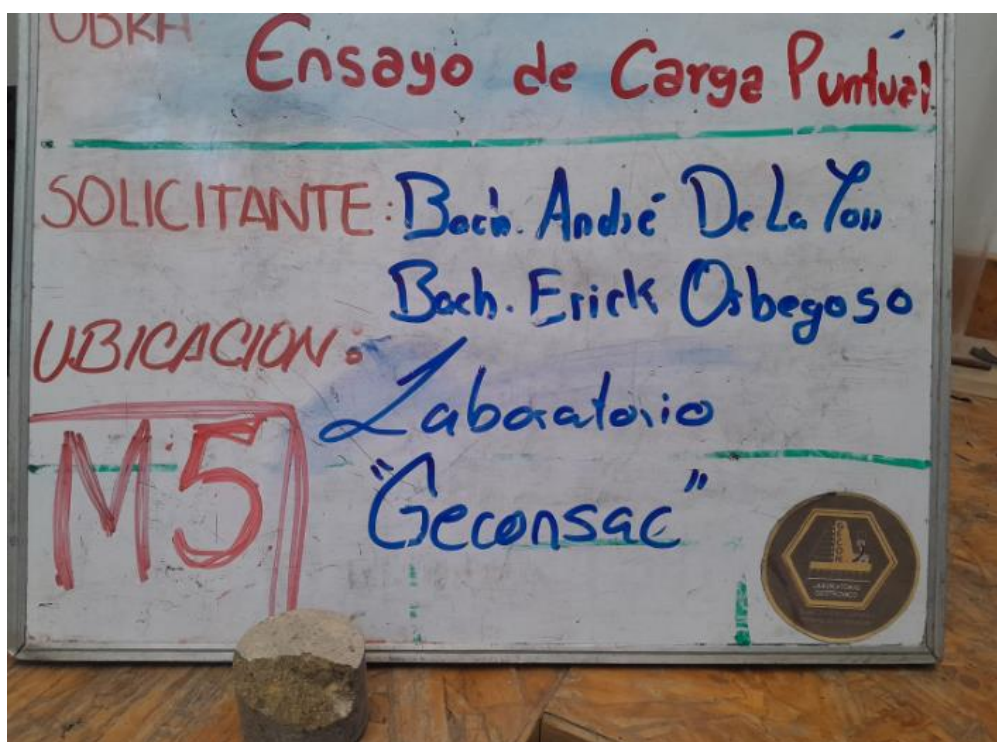 OBRA:
Ensayo de Carga Puntual
SOLICITANTE: Bach. André De La
Bach. Erick Orbegoso
UBICACION:
Laboratorio
"Geconsac"
M-5
LABORATORIO
GEOTECNICO